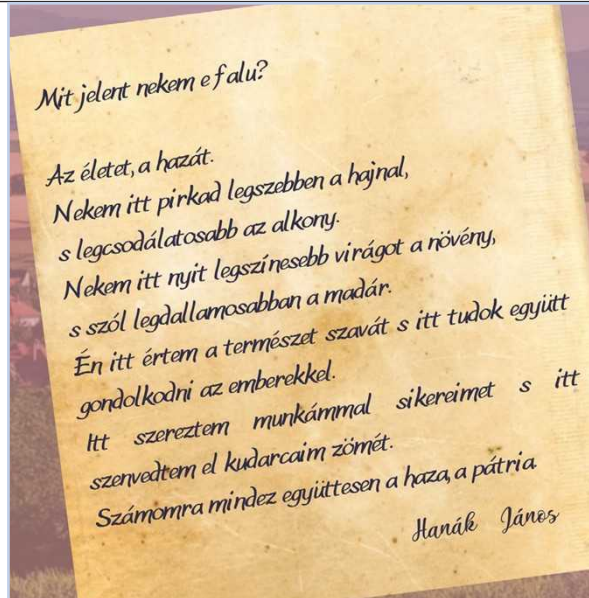 Mit jelent nekem e falu?
Az életet, a hazát.
Nekem itt pirkad legszebben a hajnal,
s legcsodálatosabb az alkony.
Nekem itt nyit legszínesebb virágot a növény,
s szól legdallamosabban a madár.
Én itt értem a természet szavát s itt tudok együtt
gondolkodni az emberekkel.
Itt szereztem munkámmal sikereimet s itt
szenvedtem el kudarcaim zömét.
Számomra mindez együttesen a haza, a pátria
Hanák János